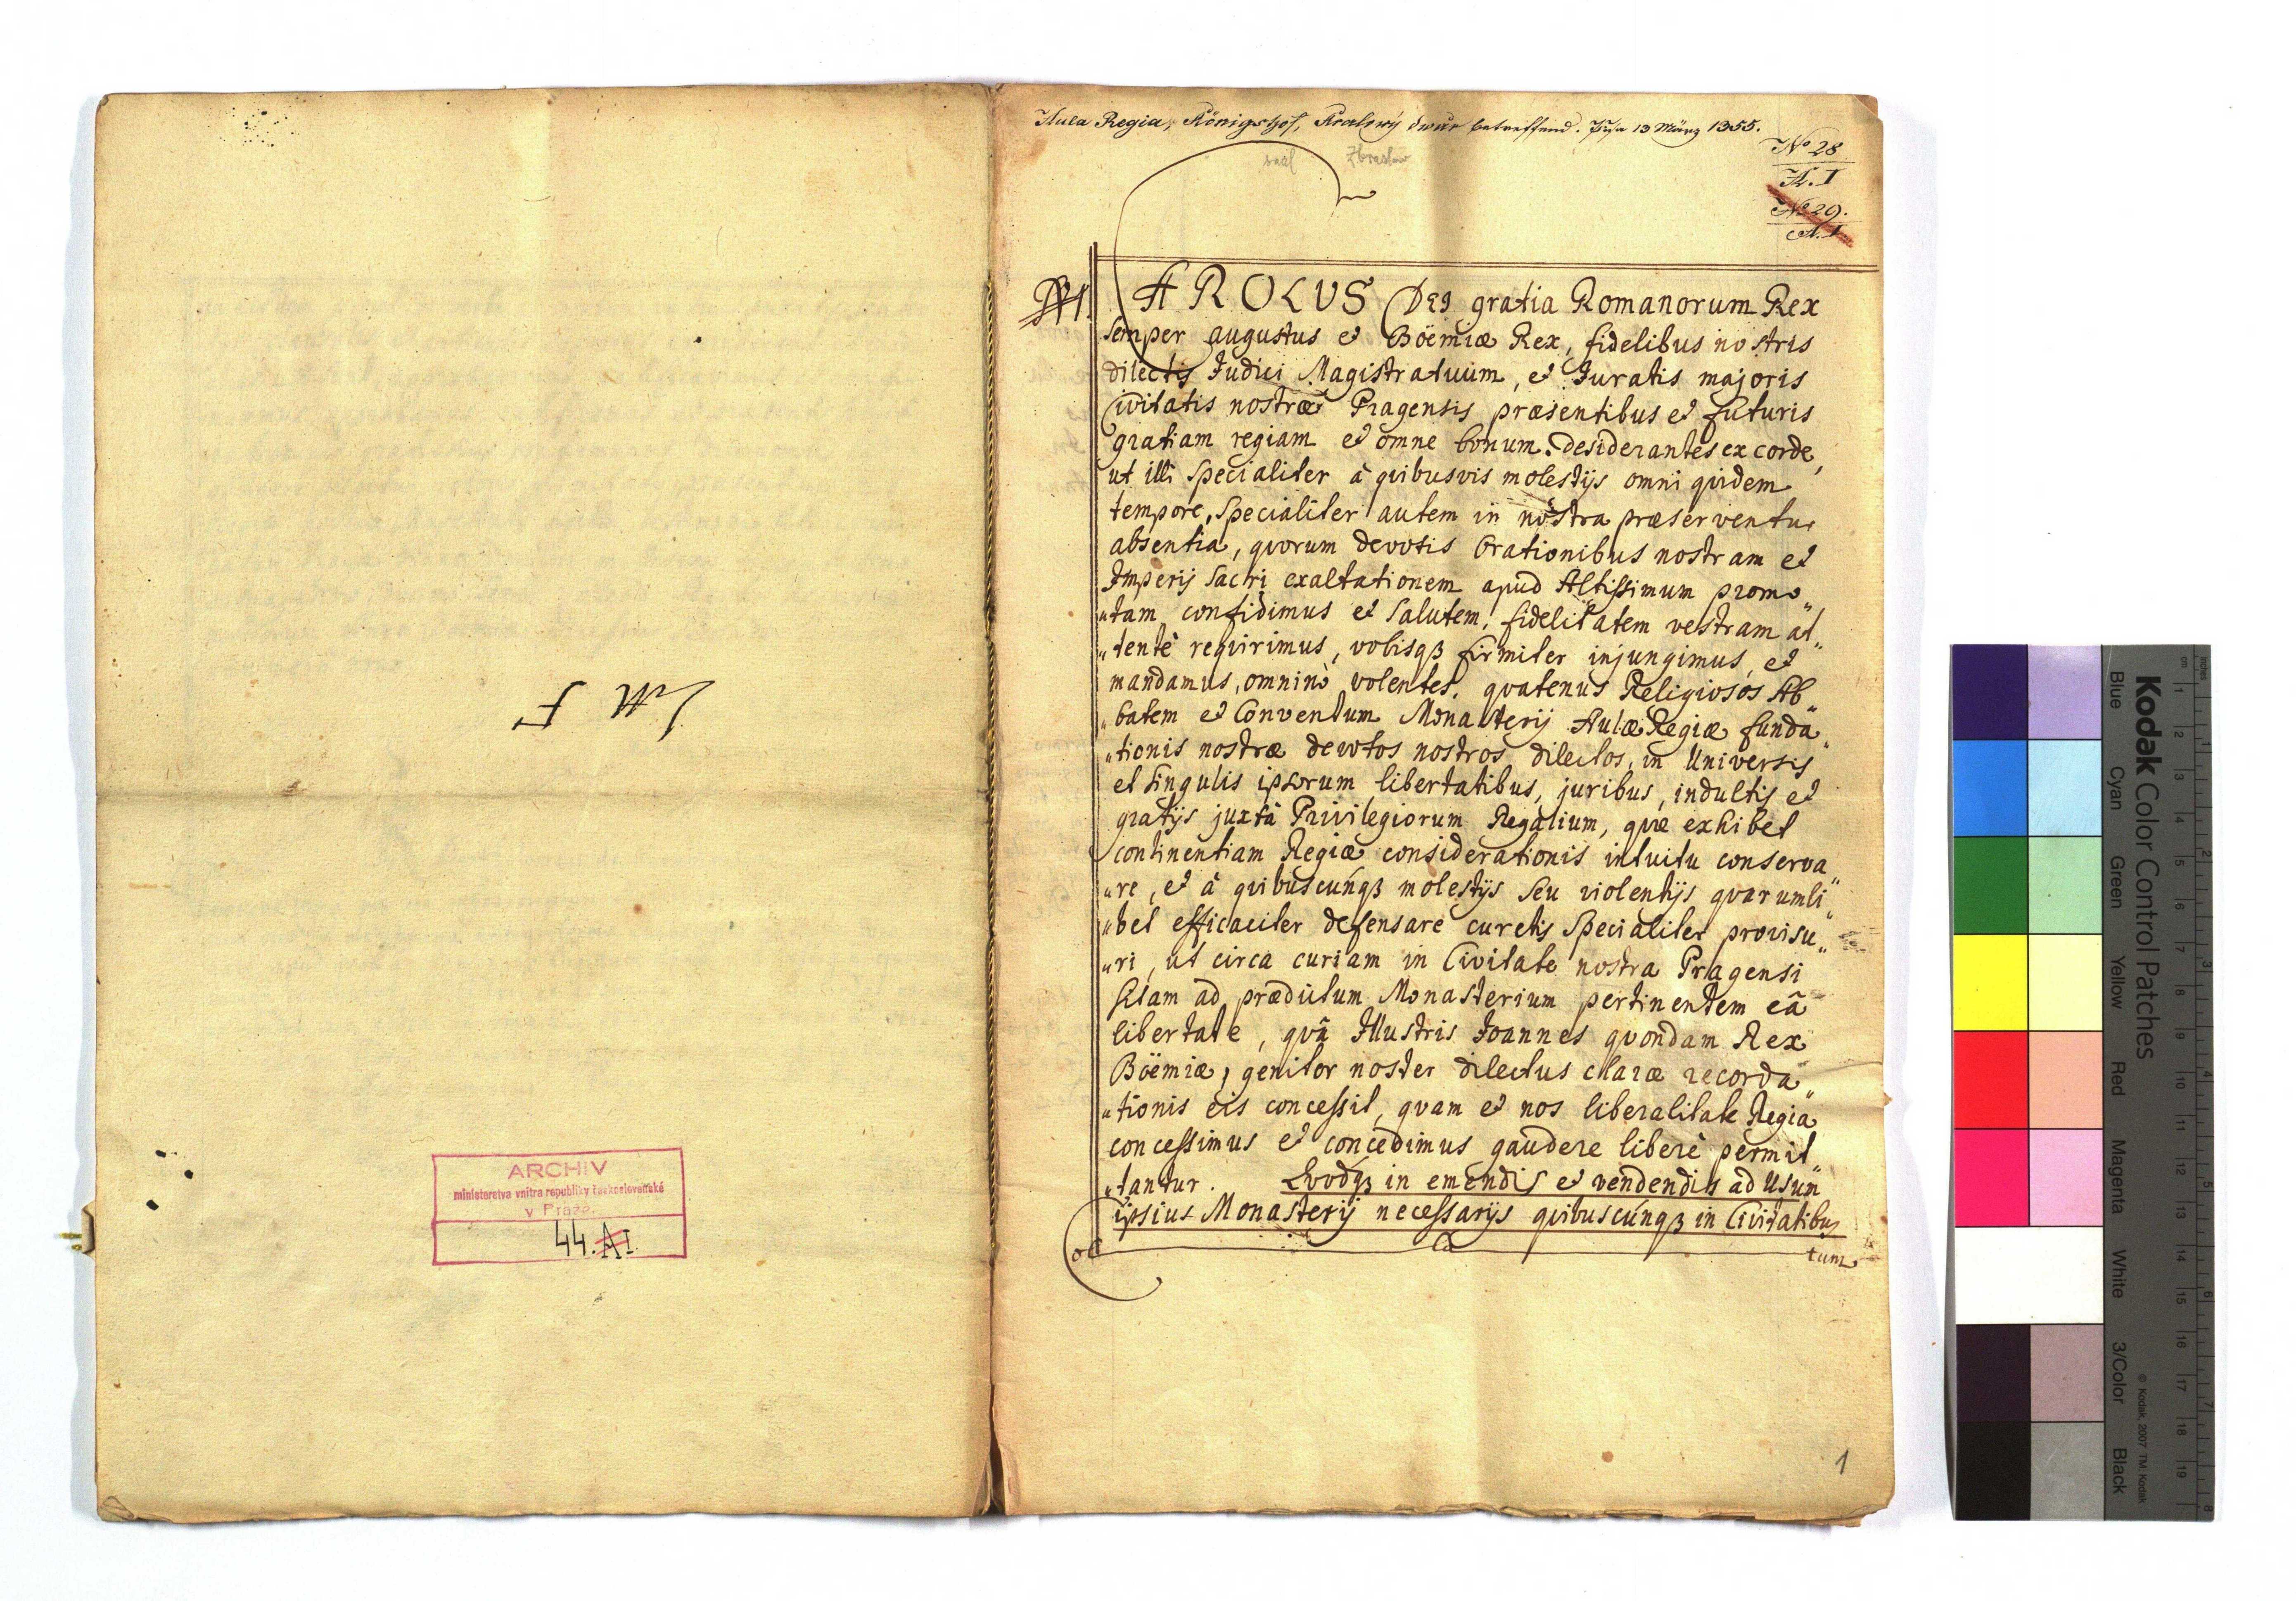 F M J
ARCHIV
ministerstva vnitra republiky československé
v Praze.
44. AI.
Aula Regia, Königshof, Kralowý dwůr betreffend. Pisa 13 März 1355.
Zbraslaw
No 28
A. I
No 29.
A. I
CAROLUS Dei gratia Romanorum Rex
semper augustus et Böemiæ Rex, fidelibus nostris
dilectis Judici Magistratuum, et Juratis majoris
Civitatis nostræ Pragensis præsentibus et futuris
gratiam regiam et omne bonum. Desiderantes ex corde,
ut illi specialiter à quibusvis molestijs omni quidem
tempore, specialiter autem in nostra præserventur
absentia, quorum devotis Orationibus nostram et
Imperij Sacri exaltationem apud Altissimum promo„
„tam confidimus et Salutem, fidelitatem vestram at„
„tentè requirimus, vobisqȝ firmiter injungimus, et
mandamus, omninò volentes, quatenus Religiosos Ab„
„batem et Conventum Monasterij Aulæ Regiæ funda„
„tionis nostræ devotos nostros dilectos, in Universis
et singulis ipsorum libertatibus, juribus, indultis et
gratijs juxtà Privilegiorum Regalium, quæ exhibet
continentiam Regiæ considerationis intuitu conserva„
„re, et à quibuscunqȝ molestijs seu violentijs quarumli„
„bet efficaciter defensare curetis specialiter provisu„
„ri, ut circa curiam in Civitate nostra Pragensi
sitam ad prædictum Monasterium pertinentem eâ
libertate, quâ Illustris Joannes quondam Rex
Böemiæ, genitor noster dilectus claræ recorda„
„tionis eis concessit, quam et nos liberalitate Regia
concessimus et concedimus gaudere liberè permit„
„tantur. Quodqȝ in emendis et vendendis ad Usum
ipsius Monasterij necessarijs quibuscunqȝ in Civitatibus
tum
1